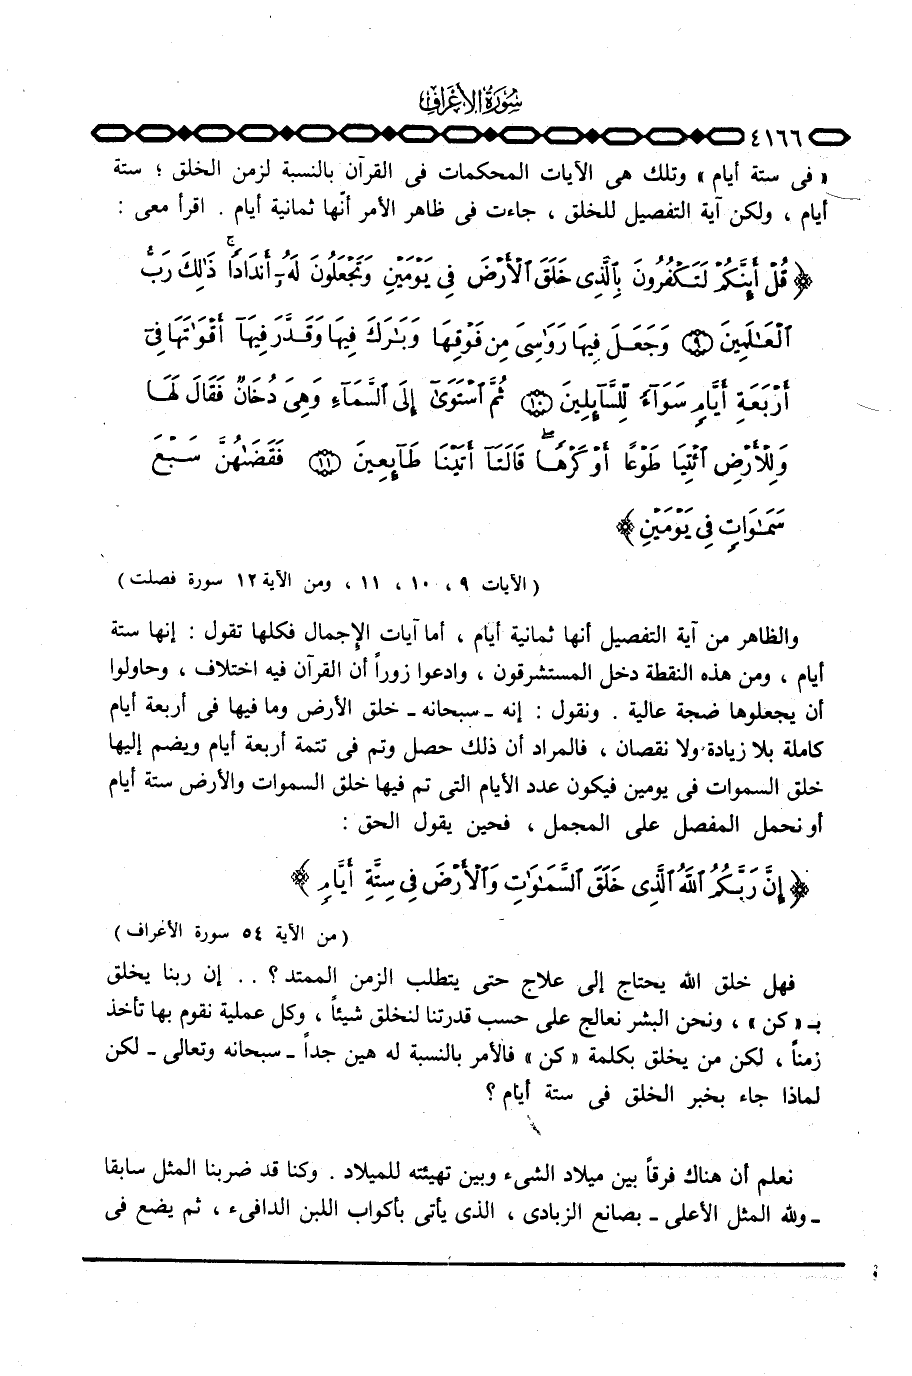 سورة الأعراف
٤١٦٦
« فى ستة أيام » وتلك هى الآيات المحكمات فى القرآن بالنسبة لزمن الخلق ؛ ستة
أيام ، ولكن آية التفصيل للخلق ، جاءت فى ظاهر الأمر أنَّها ثمانية أيام . اقرأ معى :
﴿ قُلْ أَئِنَّكُمْ لَتَكْفُرُونَ بِالَّذِى خَلَقَ ٱلْأَرْضَ فِى يَوْمَيْنِ وَتَجْعَلُونَ لَهُۥٓ أَندَادًا ۚ ذَٰلِكَ رَبُّ
ٱلْعَٰلَمِينَ ﴿٩﴾ وَجَعَلَ فِيهَا رَوَٰسِىَ مِن فَوْقِهَا وَبَٰرَكَ فِيهَا وَقَدَّرَ فِيهَآ أَقْوَٰتَهَا فِىٓ
أَرْبَعَةِ أَيَّامٍ سَوَآءً لِّلسَّآئِلِينَ ﴿١٠﴾ ثُمَّ ٱسْتَوَىٰٓ إِلَى ٱلسَّمَآءِ وَهِىَ دُخَانٌ فَقَالَ لَهَا
وَلِلْأَرْضِ ٱئْتِيَا طَوْعًا أَوْ كَرْهًا ۖ قَالَتَآ أَتَيْنَا طَآئِعِينَ ﴿١١﴾ فَقَضَىٰهُنَّ سَبْعَ
سَمَٰوَاتٍ فِى يَوْمَيْنِ ﴾
( الآيات ٩ ، ١٠ ، ١١ ، ومن الآية ١٢ سورة فصلت )
والظاهر من آية التفصيل أنها ثمانية أيام ، أما آيات الإجمال فكلها تقول : إنها ستة
أيام ، ومن هذه النقطة دخل المستشرقون ، وادعوا زوراً أن القرآن فيه اختلاف ، وحاولوا
أن يجعلوها ضجة عالية . ونقول : إنه ـ سبحانه ـ خلق الأرض وما فيها فى أربعة أيام
كاملة بلا زيادة ولا نقصان ، فالمراد أن ذلك حصل وتم فى تتمة أربعة أيام ويضم إليها
خلق السموات فى يومين فيكون عدد الأيام التى تم فيها خلق السموات والأرض ستة أيام
أو نحمل المفصل على المجمل ، فحين يقول الحق :
﴿ إِنَّ رَبَّكُمُ ٱللَّهُ ٱلَّذِى خَلَقَ ٱلسَّمَٰوَٰتِ وَٱلْأَرْضَ فِى سِتَّةِ أَيَّامٍ ﴾
( من الآية ٥٤ سورة الأعراف )
فهل خلق الله يحتاج إلى علاج حتى يتطلب الزمن الممتد ؟ . . إن ربنا يخلق
بـ « كن » ، ونحن البشر نعالج على حسب قدرتنا لنخلق شيئاً ، وكل عملية نقوم بها تأخذ
زمناً ، لكن من يخلق بكلمة « كن » فالأمر بالنسبة له هين جداً ـ سبحانه وتعالى ـ لكن
لماذا جاء بخبر الخلق فى ستة أيام ؟
نعلم أن هناك فرقاً بين ميلاد الشىء وبين تهيئته للميلاد . وكنا قد ضربنا المثل سابقا
ـ ولله المثل الأعلى ـ بصانع الزبادى ، الذى يأتى بأكواب اللبن الدافىء ، ثم يضع فى